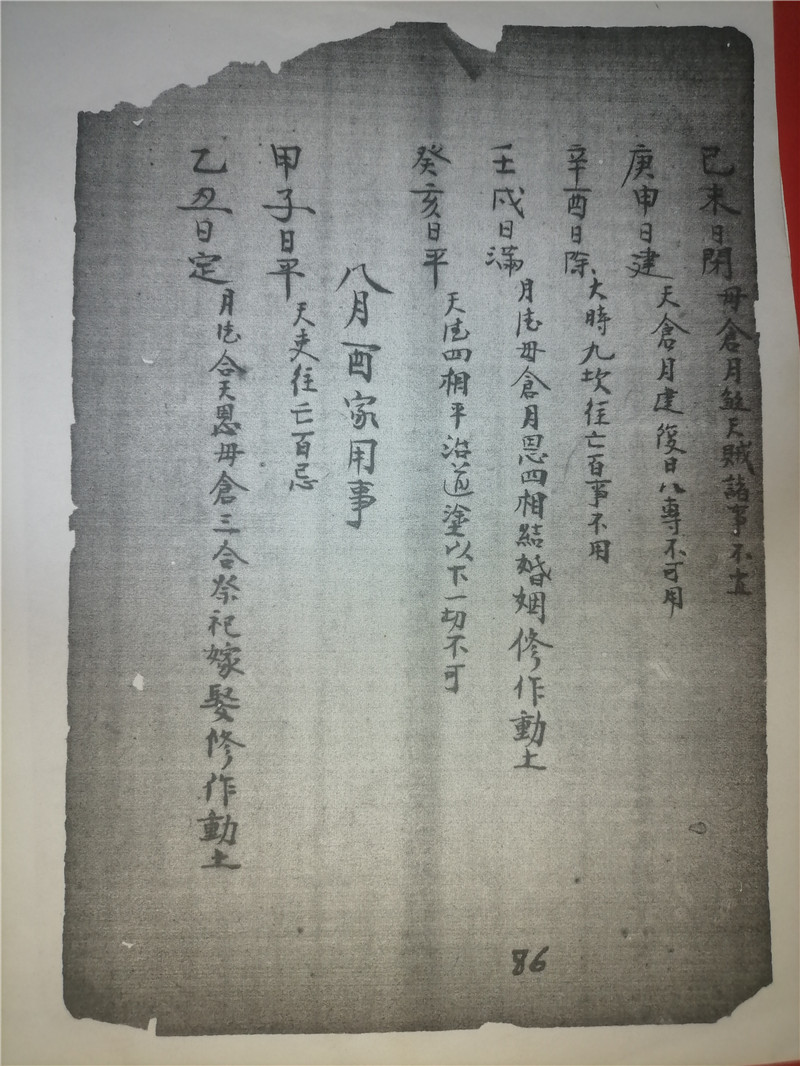 己未日閉 母倉月煞天賊諸事不宜
庚申日建 天倉月建復日八專不可用
辛酉日除 大時九坎往亡百事不用
壬戌日滿 月德母倉月恩四相結婚姻修作動土
癸亥日平 天德四相平治道塗以下一切不可
八月酉家用事
甲子日平 天吏往亡百忌
乙丑日定 月德合天恩母倉三合祭祀嫁娶修作動土
86